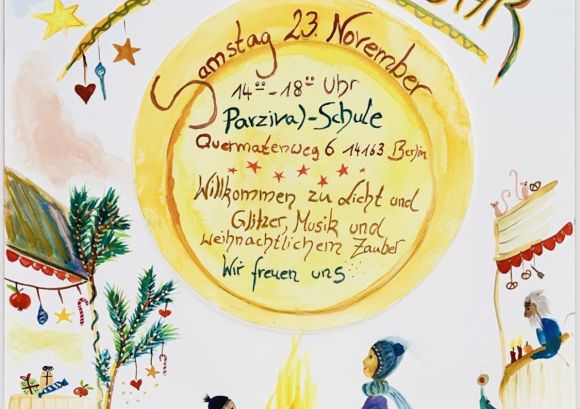 Samstag 23. November
14:00 - 18:00 Uhr
Parzival-Schule
Quermatenweg 6 14163 Berlin
Willkommen zu Licht und
Glitzer, Musik und
weihnachtlichem Zauber
Wir freuen uns